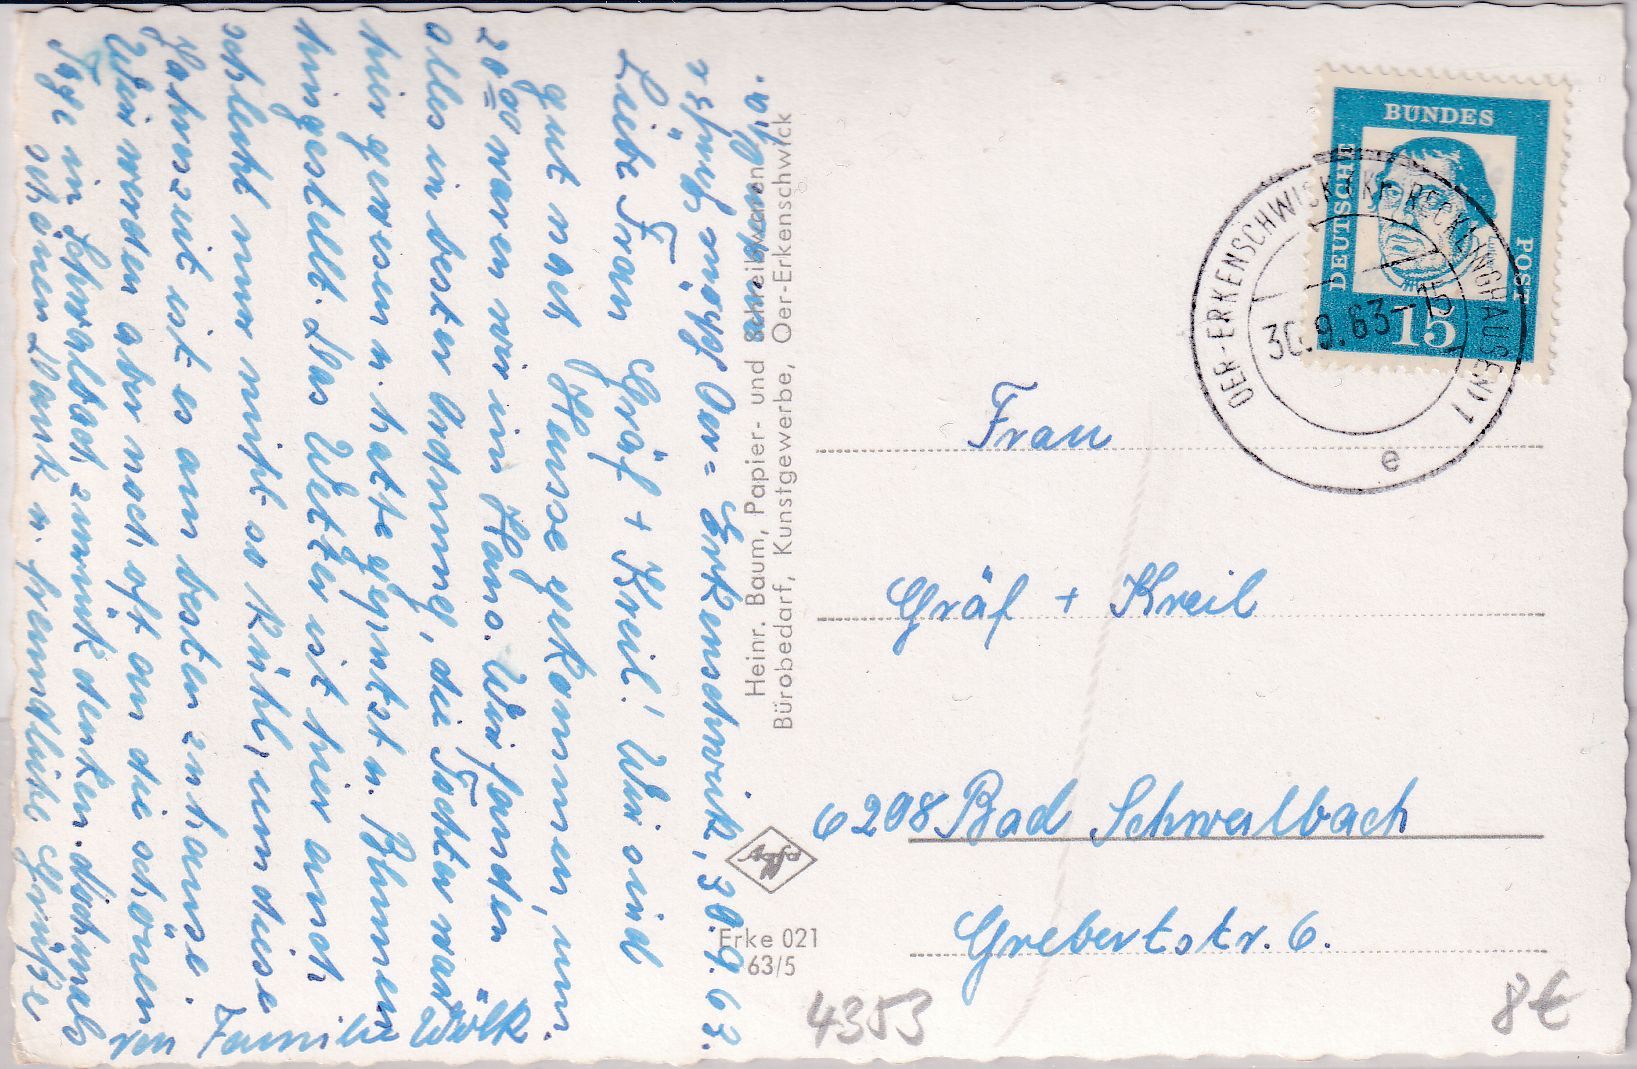 Oer-Erkenschwick, 30.9.63.
Liebe Frau Gräf + Kreil! Wir sind
gut nach Hause gekommen, um
20⁰⁰ waren wir im Haus. Wir fanden
alles in bester Ordnung, die Tochter war
hier gewesen u. hatte geputzt u. Blumen
hingestellt. Das Wetter ist hier auch
schlecht nur nicht so kühl, um diese
Jahreszeit ist es am besten zuhause.
Wir werden aber noch oft an die schönen
Tage in Schwalbach zurück denken. Nochmals
schönen Dank u. freundliche Grüße
von Familie Wölk
Heinr. Baum, Papier- und Schreibwaren
Bürobedarf, Kunstgewerbe, Oer-Erkenschwick
Erke 021
63/5
DEUTSCHE
BUNDES
POST
15
OER-ERKENSCHWICK (KR RECKLINGHAUSEN) 1
30.9.63-15
e
Frau
Gräf + Kreil
6208 Bad Schwalbach
Grebertstr. 6.
4353
8€